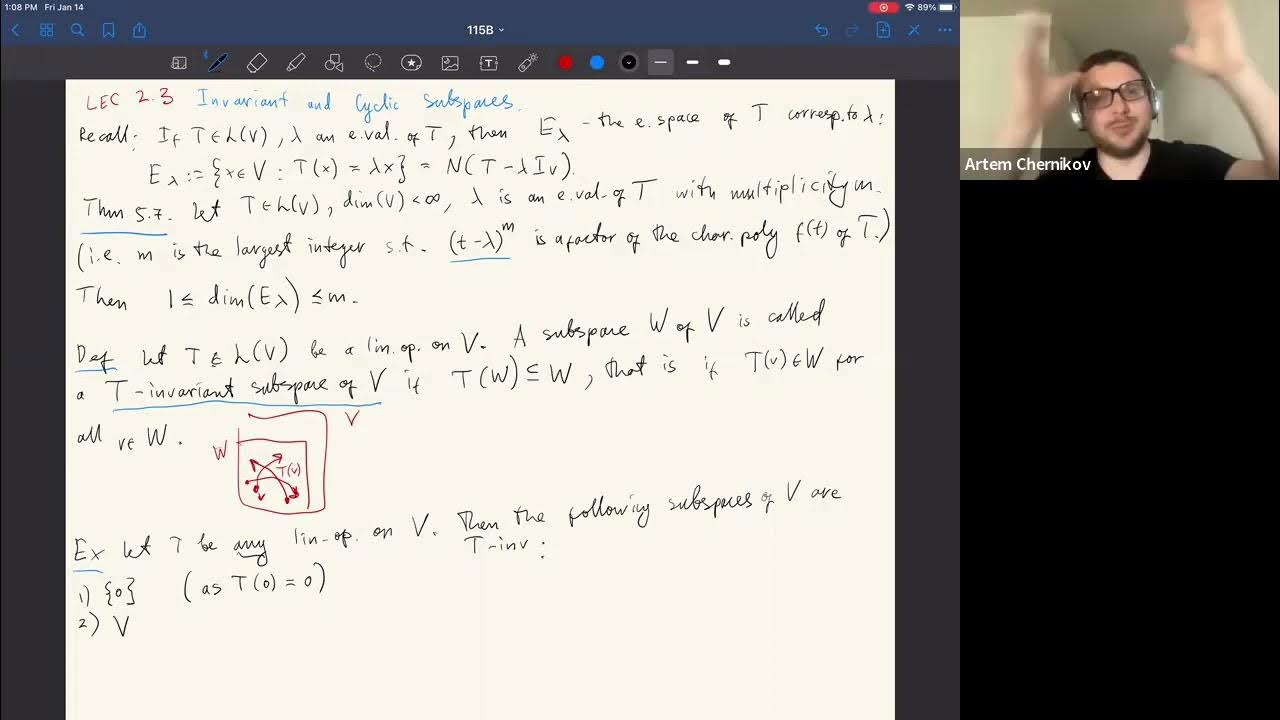 1:08 PM Fri Jan 14
89%
115B
LEC 2.3 Invariant and Cyclic Subspaces.
Recall: If T ∈ L(V), λ an e.val. of T, then E_λ - the e.space of T corresp. to λ:
E_λ := {x ∈ V : T(x) = λx} = N(T - λI_V).
Thm 5.7. Let T ∈ L(V), dim(V) < ∞, λ is an e.val. of T with multiplicity m.
(i.e. m is the largest integer s.t. (t-λ)^m is a factor of the char. poly f(t) of T.)
Then 1 ≤ dim(E_λ) ≤ m.
Def Let T ∈ L(V) be a lin. op. on V. A subspace W of V is called
a T-invariant subspace of V if T(W) ⊆ W, that is if T(v) ∈ W for
all v ∈ W.
V
W
T(v)
v
Ex Let T be any lin-op. on V. Then the following subspaces of V are
T-inv:
1) {0} (as T(0) = 0)
2) V
Artem Chernikov